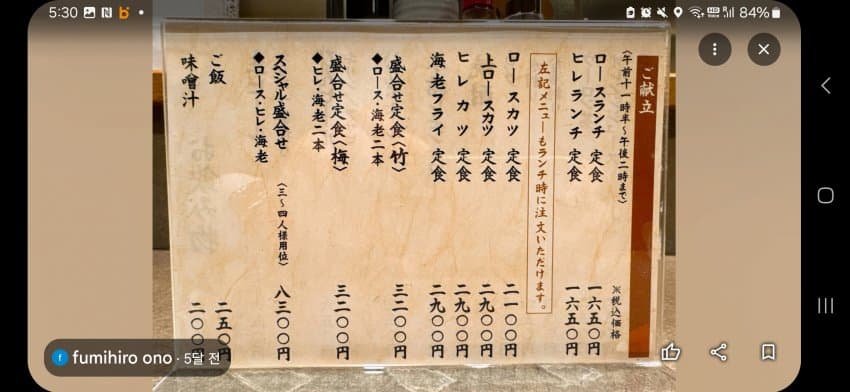 5:30
84%
ご献立
〈午前十一時半〜午後二時まで〉
※税込価格
ロースランチ 定食 一六五〇円
ヒレランチ 定食 一六五〇円
左記メニューもランチ時に注文いただけます。
ロースカツ 定食 二一〇〇円
上ロースカツ 定食 二九〇〇円
ヒレカツ 定食 二九〇〇円
海老フライ 定食 二九〇〇円
盛合せ定食〈竹〉 三二〇〇円
◆ロース・海老二本
盛合せ定食〈梅〉 三二〇〇円
◆ヒレ・海老二本
スペシャル盛合せ 〈三〜四人様用位〉 八三〇〇円
◆ロース・ヒレ・海老
ご飯 二五〇円
味噌汁 二〇〇円
fumihiro ono · 5달 전